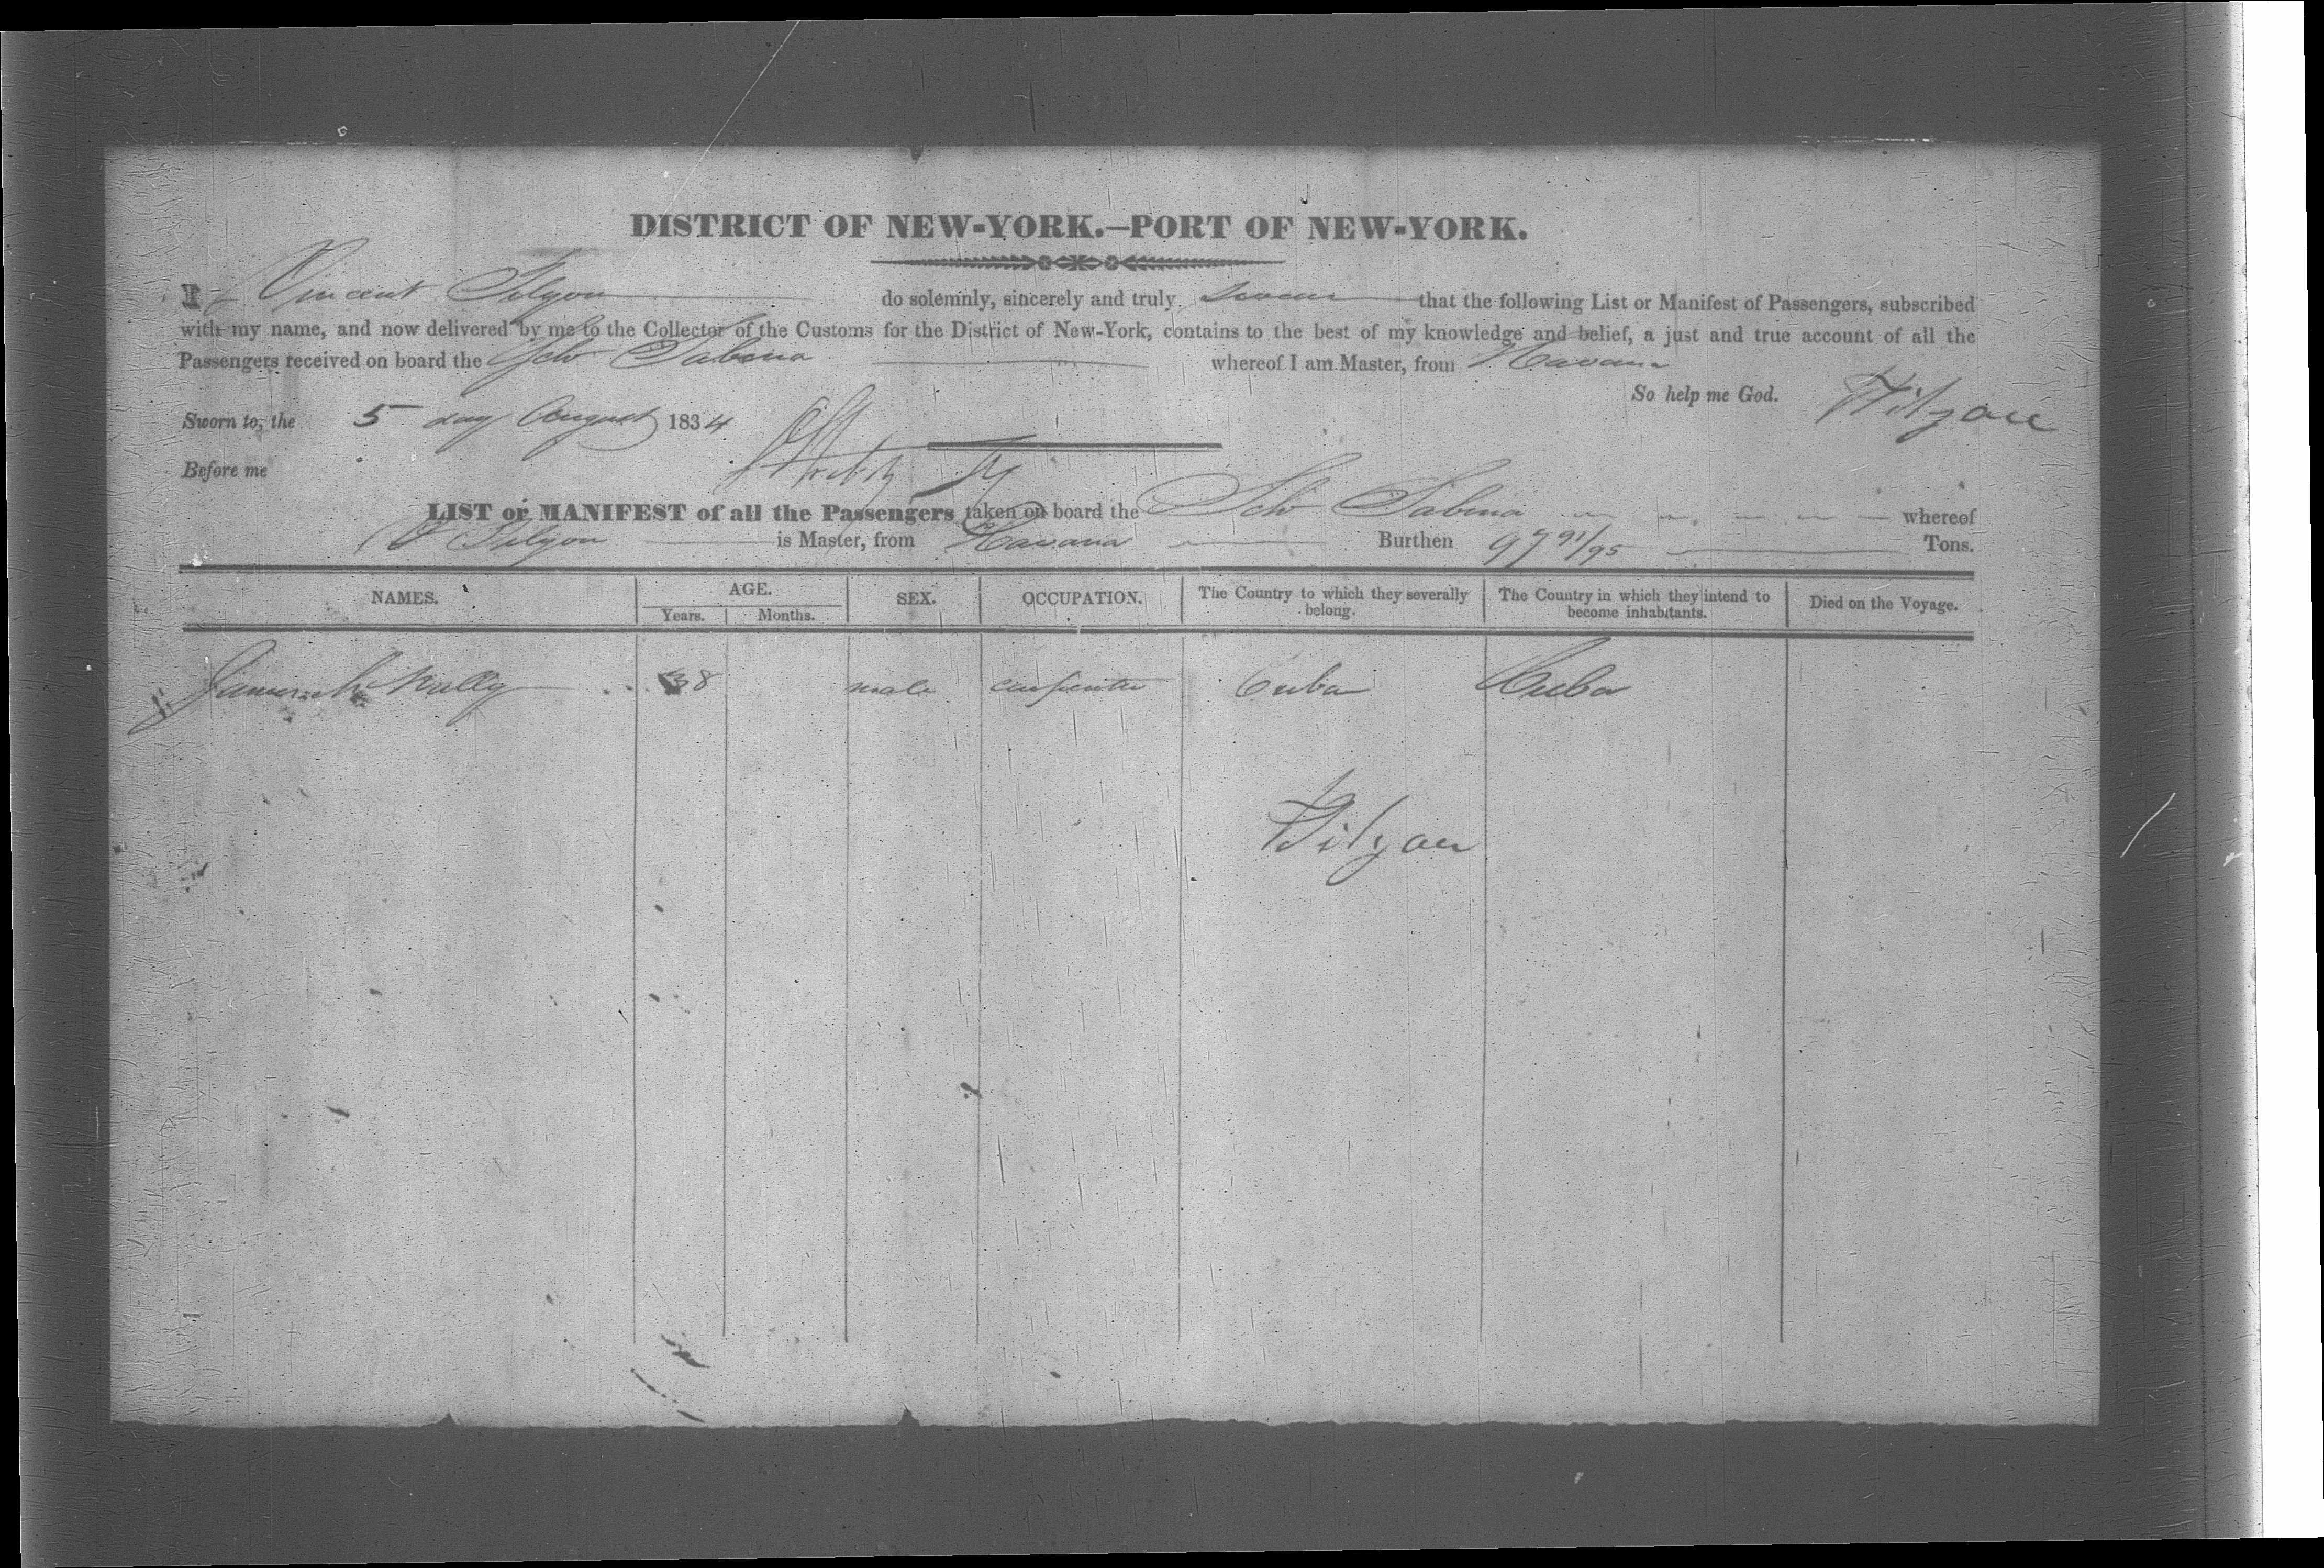 DISTRICT OF NEW-YORK.—PORT OF NEW-YORK.
I Vincent Tilyou do solemnly, sincerely and truly swear that the following List or Manifest of Passengers, subscribed
with my name, and now delivered by me to the Collector of the Customs for the District of New-York, contains to the best of my knowledge and belief, a just and true account of all the
Passengers received on board the Schr Sabina whereof I am Master, from Havana
So help me God. V Tilyou
Sworn to, the 5 day August 1834
Before me
LIST or MANIFEST of all the Passengers taken on board the Schr Sabina whereof
V Tilyou is Master, from Havana Burthen 97 91/95 Tons.
NAMES. AGE. SEX. OCCUPATION. The Country to which they severally belong. The Country in which they intend to become inhabitants. Died on the Voyage.
Years. Months.
James McNally 38 male carpenter Cuba Cuba
V Tilyou